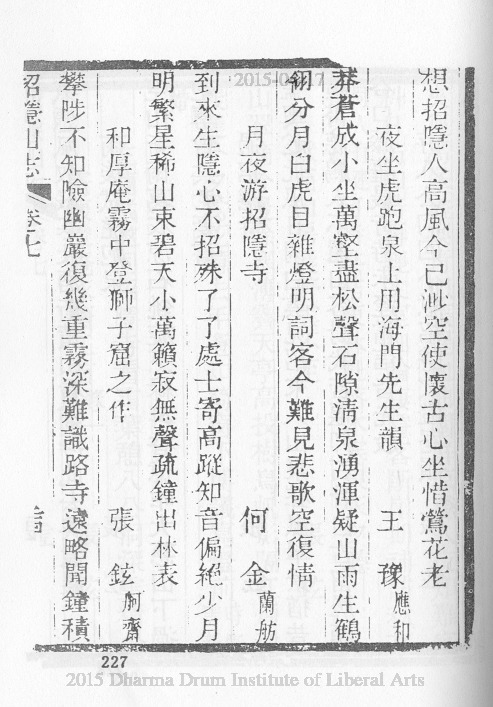 想招隱人高風今已渺空使懷古心坐惜鶯花老
夜坐虎跑泉上用海門先生韻　王豫應和
莽蒼成小坐萬壑盡松聲石隙淸泉湧渾疑山雨生鶴
翎分月白虎目雜燈明詞客今難見悲歌空復情
月夜游招隱寺　何金蘭舫
到來生隱心不招殊了了處士寄高蹤知音偏絶少月
明繁星稀山束碧天小萬籟寂無聲疏鐘出林表
和厚庵霧中登獅子窟之作　張鉉舸齋
攀陟不知險幽巖復幾重霧深難識路寺遠略聞鐘積
招隱山志　卷七
227
2015 Dharma Drum Institute of Liberal Arts